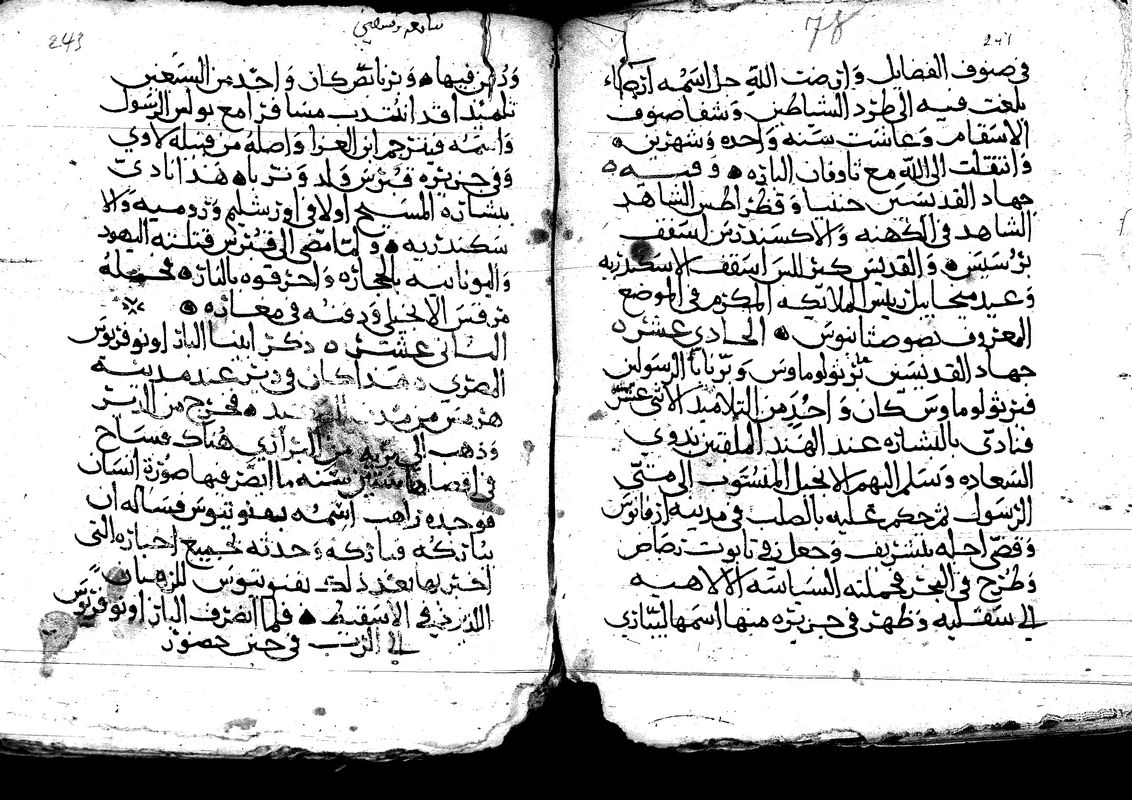 78
241
في صنوف الفضايل وارضت الله جل اسمه ارضاء
بلغت فيه الى طرد الشياطين وشفا صنوف
الاسقام وعاشت سنه واحده وشهرين
وانتقلت الى الله مع تاوفان البازه وفيه
جهاد القديسين حننيا وقطراطس الشاهد
الشاهد في الكهنه والاكسندرس اسقف
برسيس والقديس كيرللس اسقف الاسكندريه
وعيد ميخاييل رييس الملايكه المكرم في الموضع
المعروف الحادي عشر
جهاد القديسين برثولوماوس وبرنابا الرسولين
فبرثولوماوس كان واحد من التلاميذ الاثني عشر
فنادى بالبشاره عند الهند الملقبين بذوي
السعاده وسلم اليهم الانجيل المنسوب الى متى
الرسول ثم حكم عليه بالصلب في مدينه ارفانوس
وقضى اجله بتشريف وجعل في تابوت رصاص
وطرح في البحر فحملته السياسه الالاهيه
الى سقليه وظهر في جزيره منها اسمها ليباري
243
سابعه وسبعين
ودفن فيها وبرنابا كان واحد من السبعين
تلميذا قد انتدب مسافرا مع بولس الرسول
واسمه فيترجم ابن العزا واصله من قبيله لاوي
وفي جزيره قبرس ولد وتربا هذا نادى
بشاره المسيح اولا في اورشليم وروميه والا
سكندريه ولما مضى الى قبرس قتلته اليهود
واليونانيه بالحجاره واحرقوه بالنار فحمله
مرقس الانجيلي ودفنه في مغاره
الثاني عشر ذكر ابينا البار اونوفريوس
المصري هذا كان في دير عند مدينه
هرمس من مدن الصعيد فخرج من الدير
وذهب الى بريه من البراري هناك فساح
في اقصاها ستين سنه ما ابصر فيها صورة انسان
فوجده راهب اسمه بفنوتيوس فساله ان
يباركه فباركه وحدثه بجميع اخباره التي
اخبر بها بعد ذلك بفنوتيوس للرهبان
الذين في الاسقيط فلما انصرف البار اونوفريوس
الى الرب في حين حضور